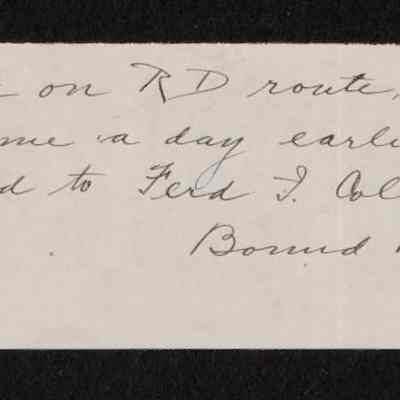 on RD route,
me a day earli
d to Ferd I. Col
Bound